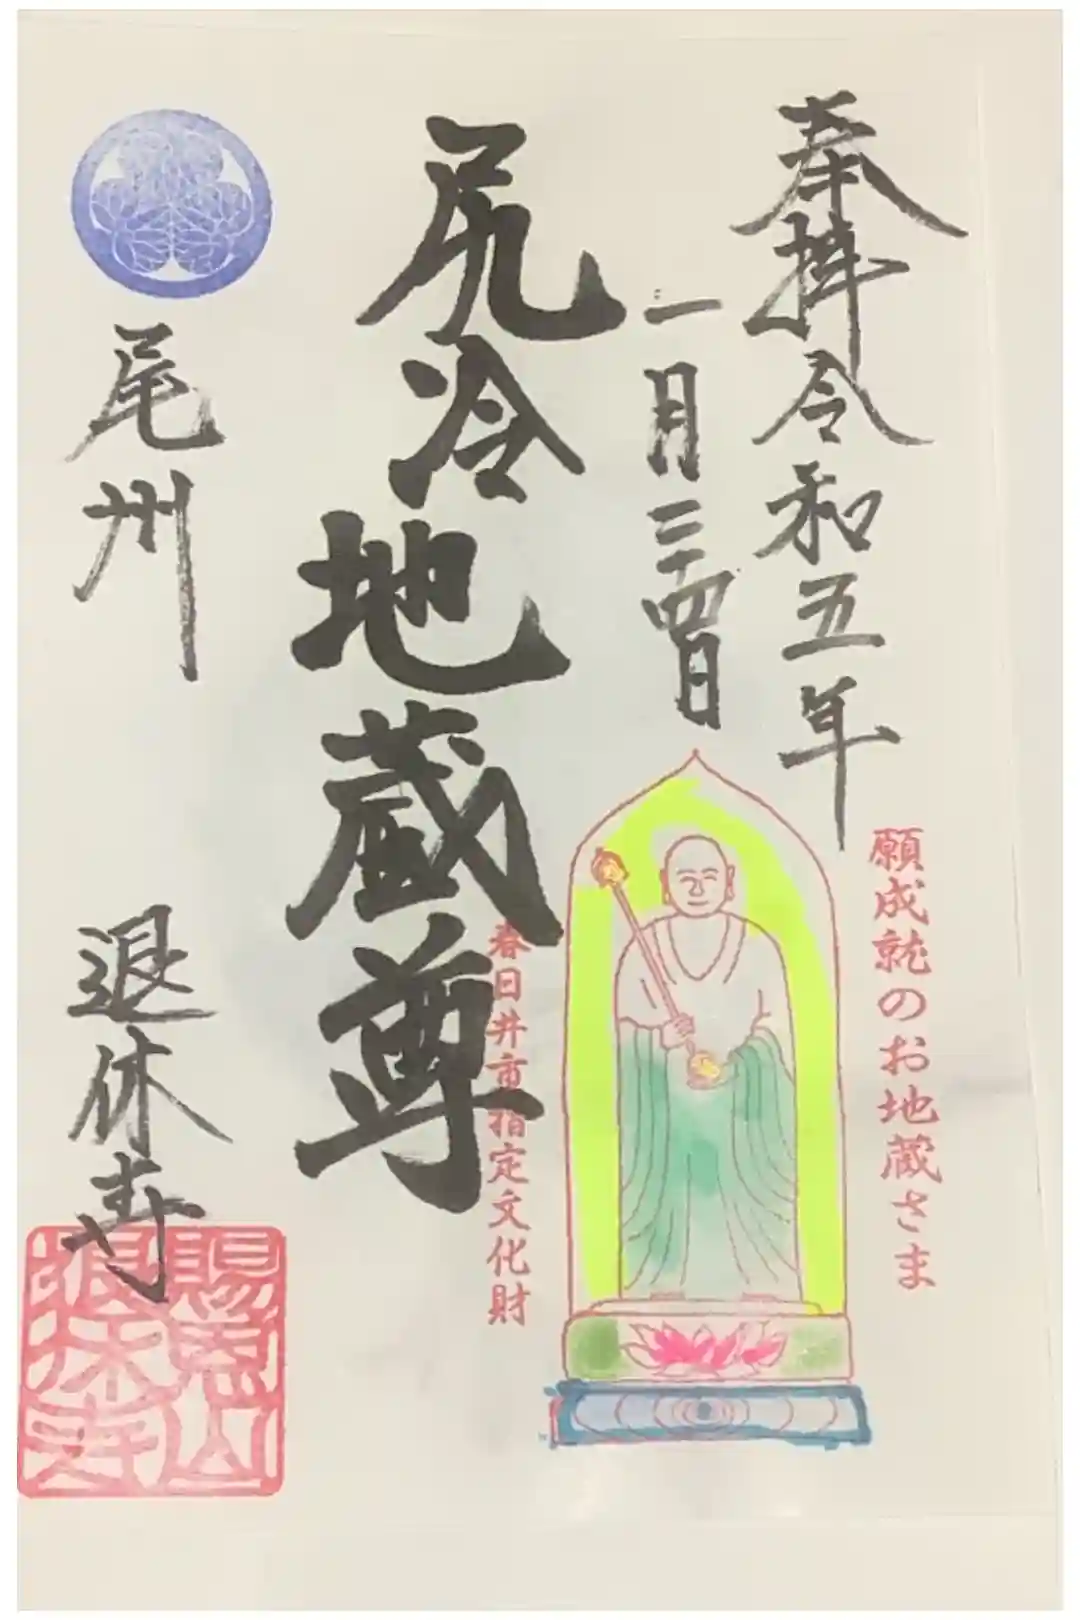 奉拝 令和五年
一月二十四日
願成就のお地蔵さま
尻冷地蔵尊
春日井市指定文化財
尾州 退休寺
退休寺